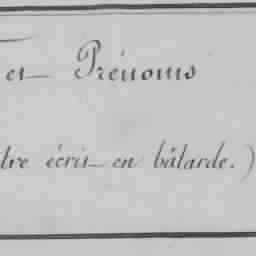 et Prénoms
tre écrit en bâtarde.)